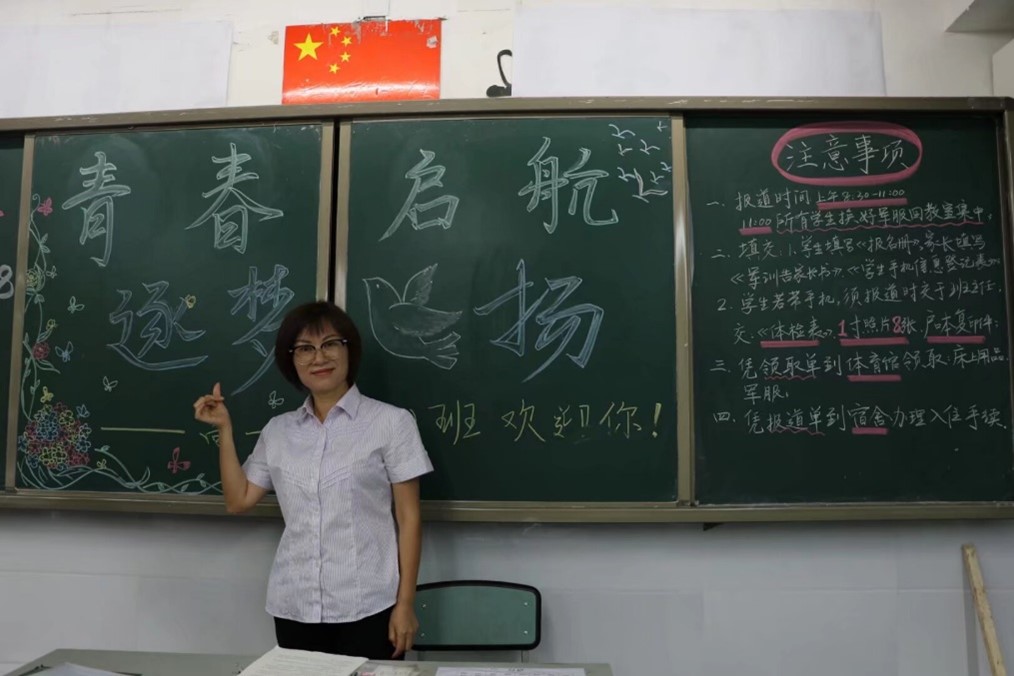 青春
启航
逐梦
扬
班 欢迎你!
注意事项
一、报道时间上午8:30-11:00
11:00所有学生换好军服回教室集中。
二、填交:1.学生填写《报名册》,家长填写
《军训告家长书》《学生手机信息登记表》
2.学生若带手机,须报道时交于班主任.
交.《体检表》.1寸照片8张.户本复印件:
三、凭领取单到体育馆领取:床上用品.
军服:
四.凭报道单到宿舍办理入住手续.
8